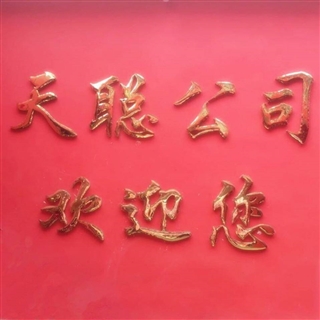 天聪公司
欢迎您